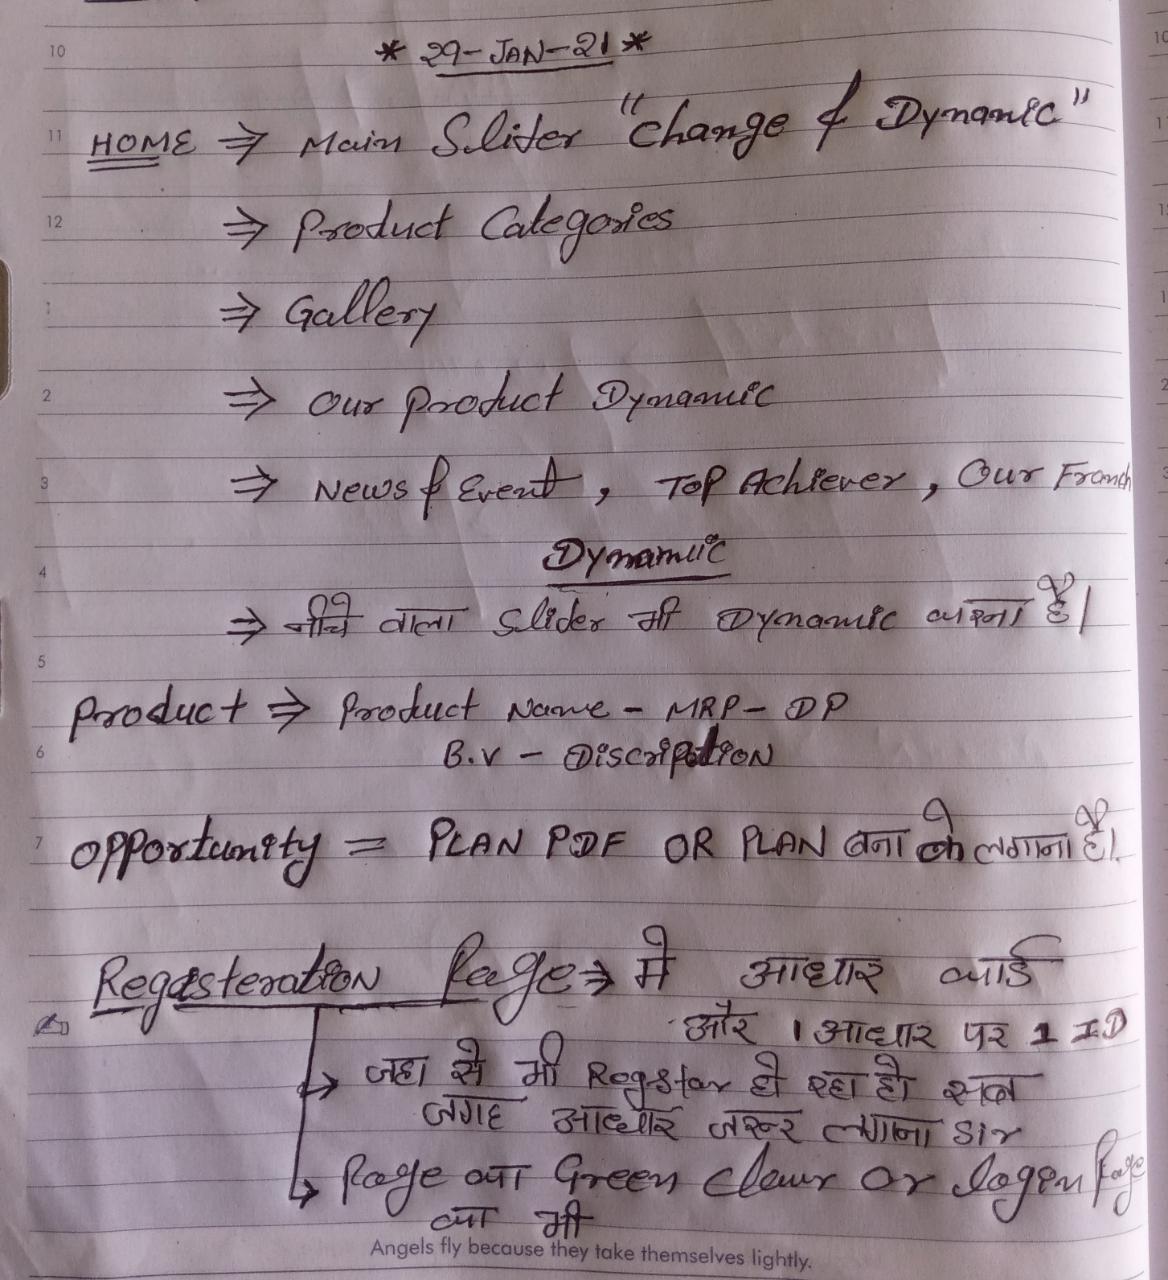 * 29-JAN-21 *
HOME ⇒ Main Sliter "Change & Dynamic"
⇒ Product Categories
⇒ Gallery
⇒ Our Product Dynamic
⇒ News & Event, Top Achiever, Our Franch
Dynamic
⇒ नीचे वाला Slider भी Dynamic करना है।
Product ⇒ Product Name - MRP - DP
B.V - Discription
Opportunity = PLAN PDF OR PLAN बना के लगाना है।
Registeration Page ⇒ मे आधार कार्ड
और 1 आधार पर 1 ID
→ जहा से भी Regstar हो रहा हो सब
जगह आधार जरूर लगाना Sir
→ Page का Green Clour or logen Page
का भी
Angels fly because they take themselves lightly.
10
11
12
1
2
3
4
5
6
7